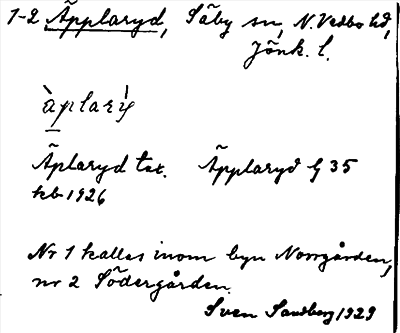 1-2 Äpplaryd, Säby sn, N. Vedbo hd,
Jönk. l.
àplarỳ
Äplaryd tax. Äpplaryd G 35
kb 1926
Nr 1 kallas inom byn Norrgården,
nr 2 Södergården.
Sven Sandberg 1929